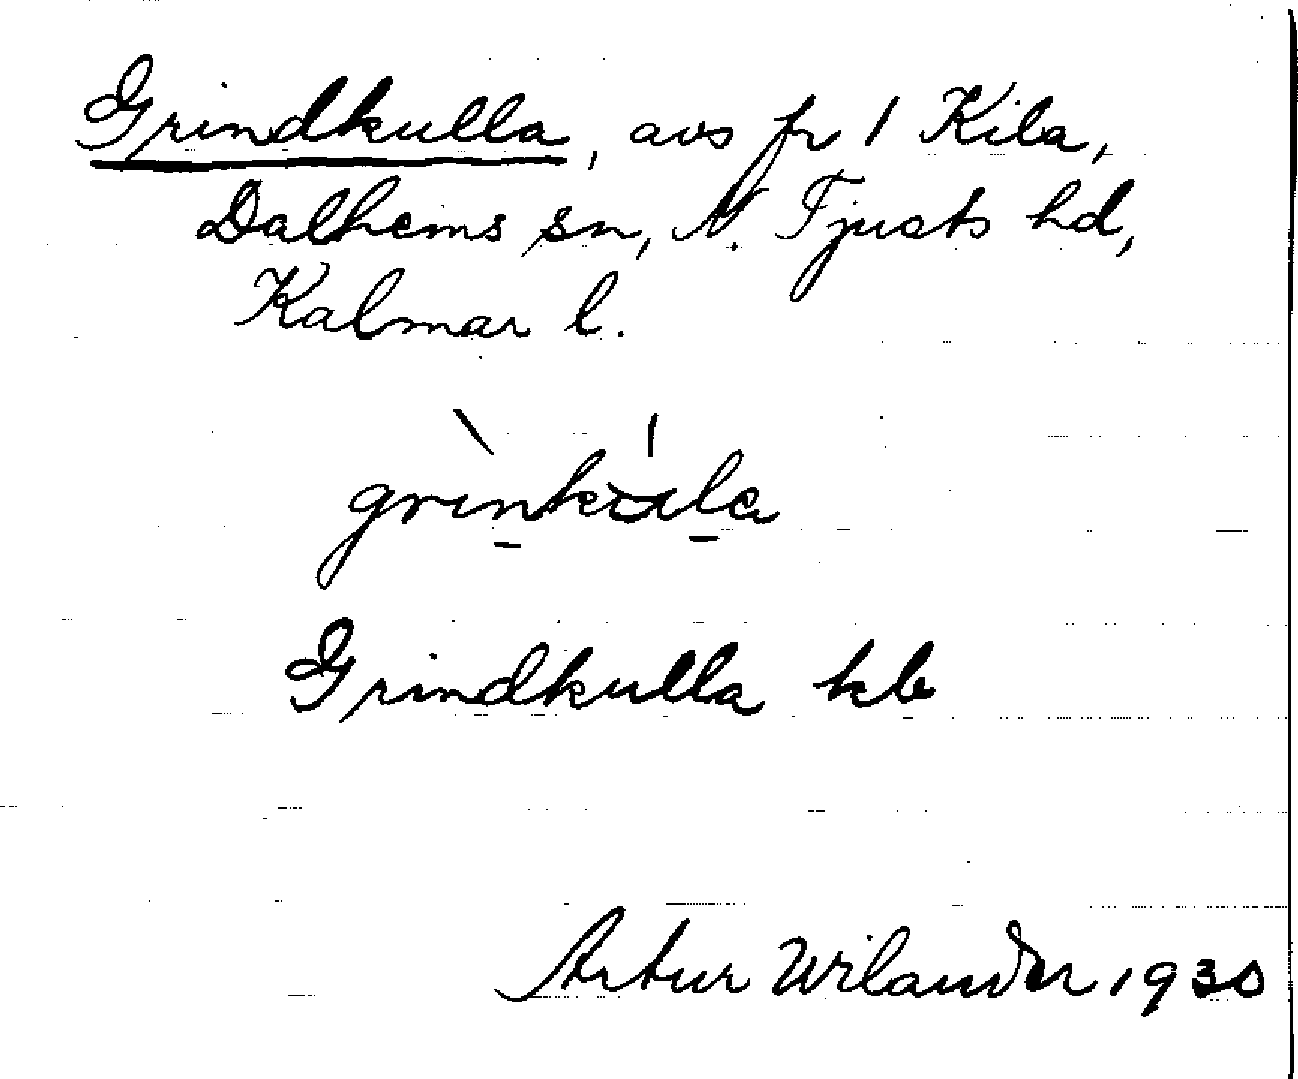 Grindkulla, avs fr 1 Kila,
Dalhems sn, N. Tjusts hd,
Kalmar l.
grinkula
Grindkulla kb
Artur Wilander 1930